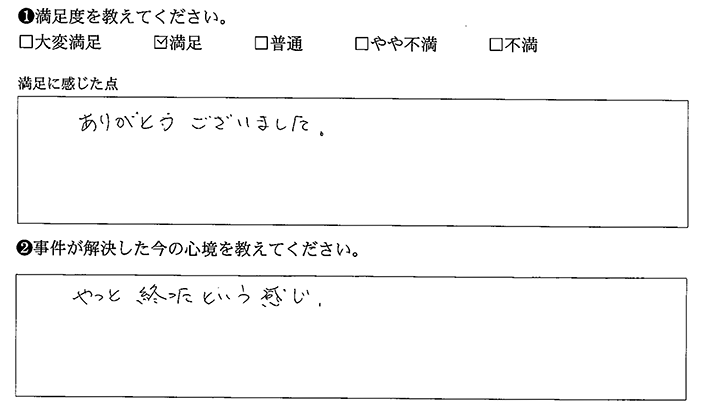 ❶満足度を教えてください。
□大変満足 ☑満足 □普通 □やや不満 □不満
満足に感じた点
ありがとうございました。
❷事件が解決した今の心境を教えてください。
やっと終ったという感じ。